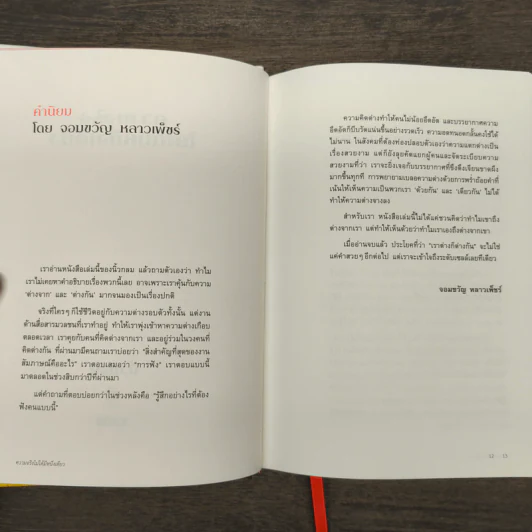 คำนิยม
โดย จอมขวัญ หลาวเพ็ชร์
เราอ่านหนังสือเล่มนี้ของนิ้วกลม แล้วถามตัวเองว่า ทำไม
เราไม่เคยหาคำอธิบายเรื่องพวกนี้เลย อาจเพราะเราคุ้นกับความ
'ต่างจาก' และ 'ต่างกัน' มากจนมองเป็นเรื่องปกติ
จริงที่ใครๆ ก็ใช้ชีวิตอยู่กับความต่างรอบตัวทั้งนั้น แต่งาน
ด้านสื่อสารมวลชนที่เราทำอยู่ ทำให้เราพุ่งเข้าหาความต่างเกือบ
ตลอดเวลา เราคุยกับคนที่คิดต่างจากเรา และอยู่ร่วมในวงคนที่
คิดต่างกัน ที่ผ่านมามีคนถามเราบ่อยว่า "สิ่งสำคัญที่สุดของงาน
สัมภาษณ์คืออะไร" เราตอบเสมอว่า "การฟัง" เราตอบแบบนี้
มาตลอดในช่วงสิบกว่าปีที่ผ่านมา
แต่คำถามที่ตอบบ่อยกว่าในช่วงหลังคือ "รู้สึกอย่างไรที่ต้อง
ฟังคนแบบนี้"
ความคิดต่างทำให้คนไม่น้อยอึดอัด และบรรยากาศความ
อึดอัดก็บีบรัดแน่นขึ้นอย่างรวดเร็ว ความอดทนอดกลั้นคงใช้ได้
ไม่นาน ในสังคมที่ต้องท่องปลอบตัวเองว่าความแตกต่างเป็น
เรื่องสวยงาม แต่ก็ยังลุยคัดแยกผู้คนและจัดระเบียบความ
สวยงามที่ว่า เราจะยิ่งเจอกับบรรยากาศที่ขึงตึงเจียนขาดผึง
มากขึ้นทุกที การพยายามเบลอความต่างด้วยการพร่ำถ้อยคำที่
เน้นให้เห็นความเป็นพวกเรา 'ด้วยกัน' และ 'เดียวกัน' ไม่ได้
ทำให้ความต่างจางลง
สำหรับเรา หนังสือเล่มนี้ไม่ได้แค่ชวนคิดว่าทำไมเขาถึง
ต่างจากเรา แต่ทำให้เห็นด้วยว่าทำไมเราเองถึงต่างจากเขา
เมื่ออ่านจบแล้ว ประโยคที่ว่า "เราต่างก็ต่างกัน" จะไม่ใช่
แค่คำสวยๆ อีกต่อไป แต่เราจะเข้าใจถึงระดับเซลล์เลยทีเดียว
จอมขวัญ หลาวเพ็ชร์